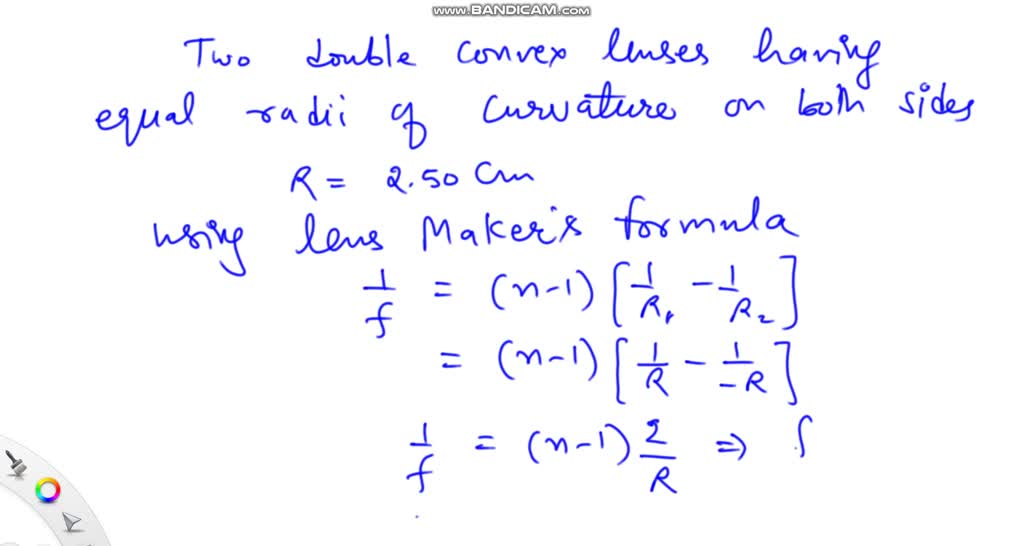 www.BANDICAM.com
Two double convex lenses having
equal radii of curvature on both sides
R = 2.50 Cm
using lens Maker's formula
1/f = (n-1) [1/R₁ - 1/R₂]
= (n-1) [1/R - 1/-R]
1/f = (n-1) 2/R ⇒ f